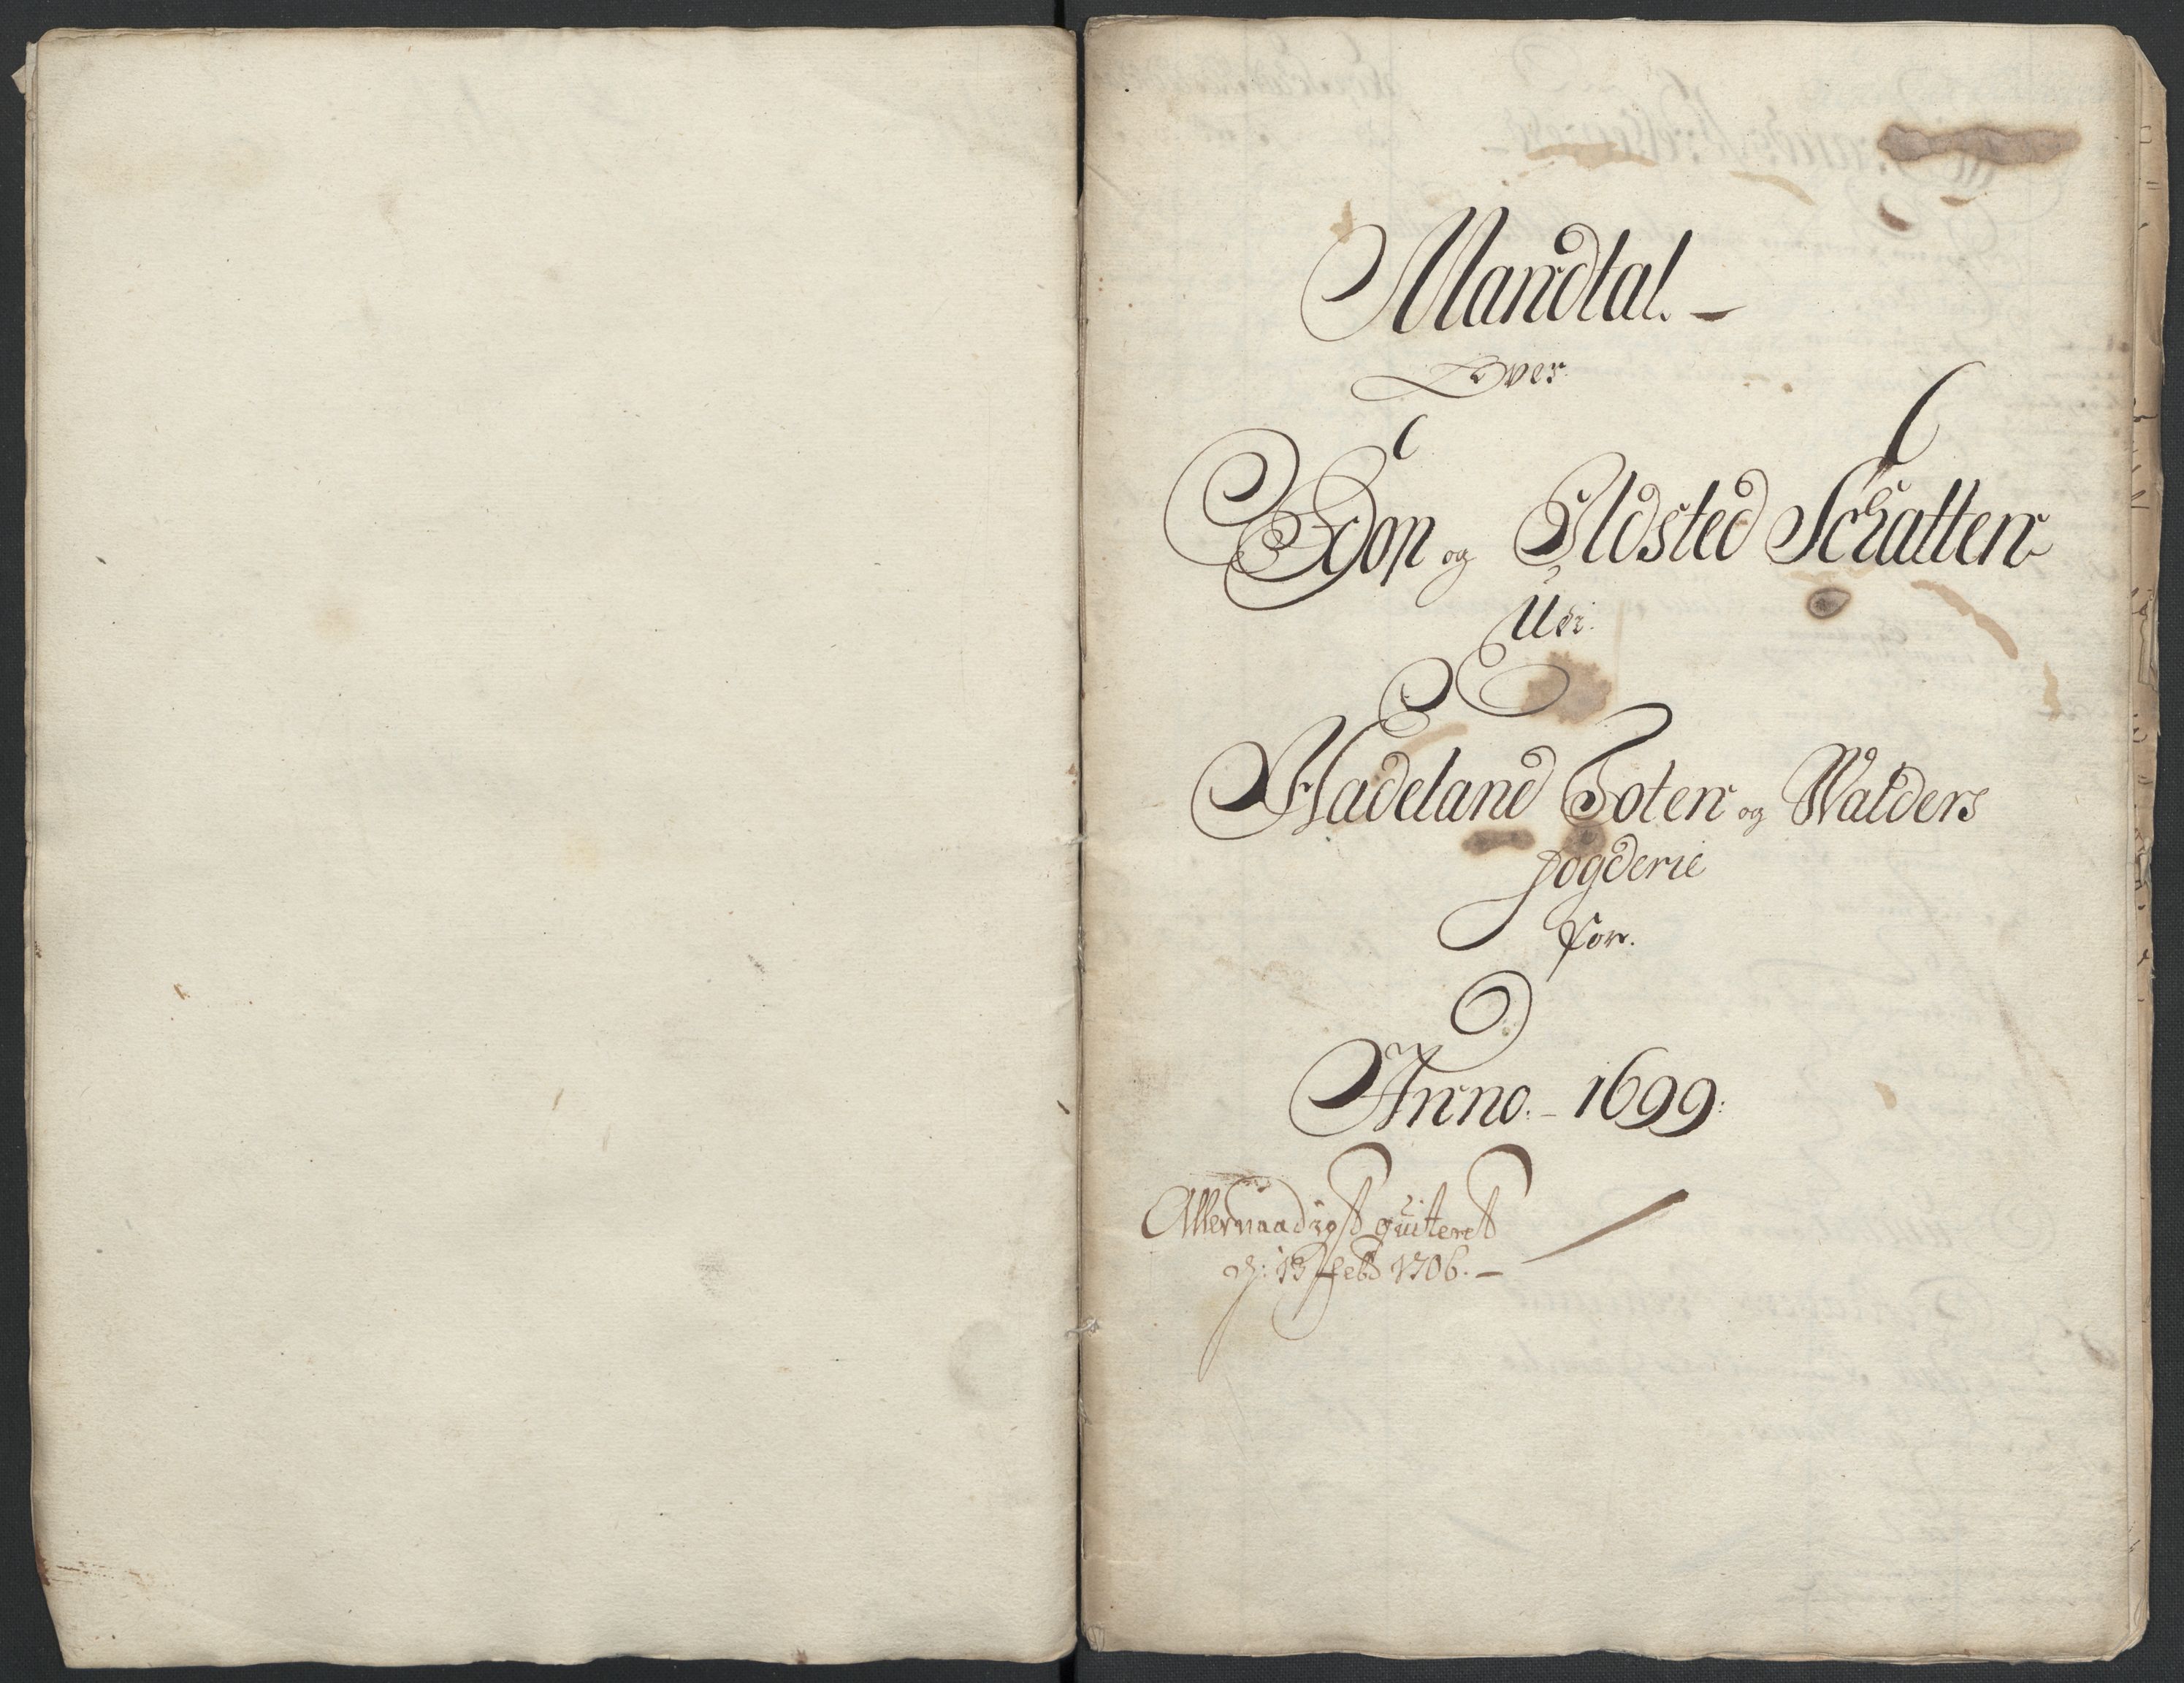 Mandtal. –
Over
Kop og Ildsted Schatten
Udi.
Hadeland Toten og Walders
fogderie
for.
Anno. – 1699:
Allernaadigst quiteret
d: 13 Feb 1706. –